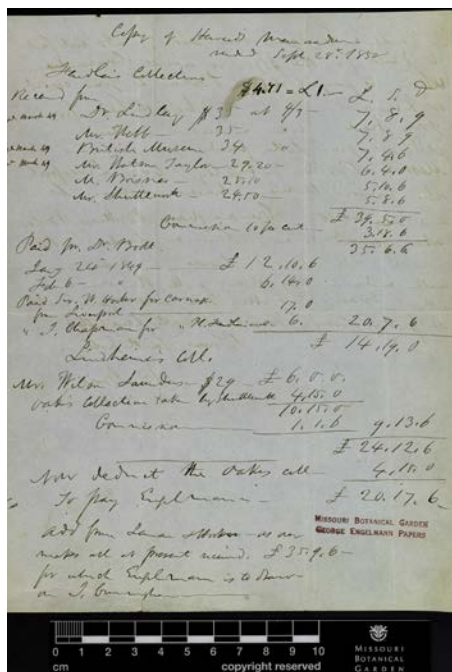 Copy of Heward Memorandum
recd Sept. 28th 1850
Fendler's Collections
$4.71 = £1.— £ s. D
Received from
Dr. Lindley $35 at 4/3 — 7.8.9
Mr. Webb — 35 " 7.8.9
British Museum 34 " 7.4.6
Mr. Watson Taylor — 29.20 — 6.4.0
M. Boissier — 5.10.6
Mr. Shuttlework — 5.8.6
£ 39.5.0
Commission 10 per cent — 3.18.6
35.6.6
Paid for Dr. Brodl.
Jany 24th 1849 — £ 12.10.6
Feb 6 — " 6.14.0
Paid Sir W. Hooker for carriage
from Liverpool — 17.0
" J. Chapman for " 6. 20.7.6
£ 14.19.0
Lindheimer's Coll.
Mr. Wilson Saunders — $29 — £ 6.0.0.
Oakes Collection taken by Shuttlewk 4.15.0
10.15.0
Commission — 1.1.6 9.13.6
£ 24.12.6
Now deduct the Oakes coll — 4.15.0
To pay Engelmann — £ 20.17.6
Add from
makes all at present received. £35.9.6 —
for which Engelmann is to draw
on J. Cunningham
MISSOURI BOTANICAL GARDEN
GEORGE ENGELMANN PAPERS
0 1 2 3 4 5 6 7 8 9 10
cm copyright reserved
MISSOURI
BOTANICAL
GARDEN